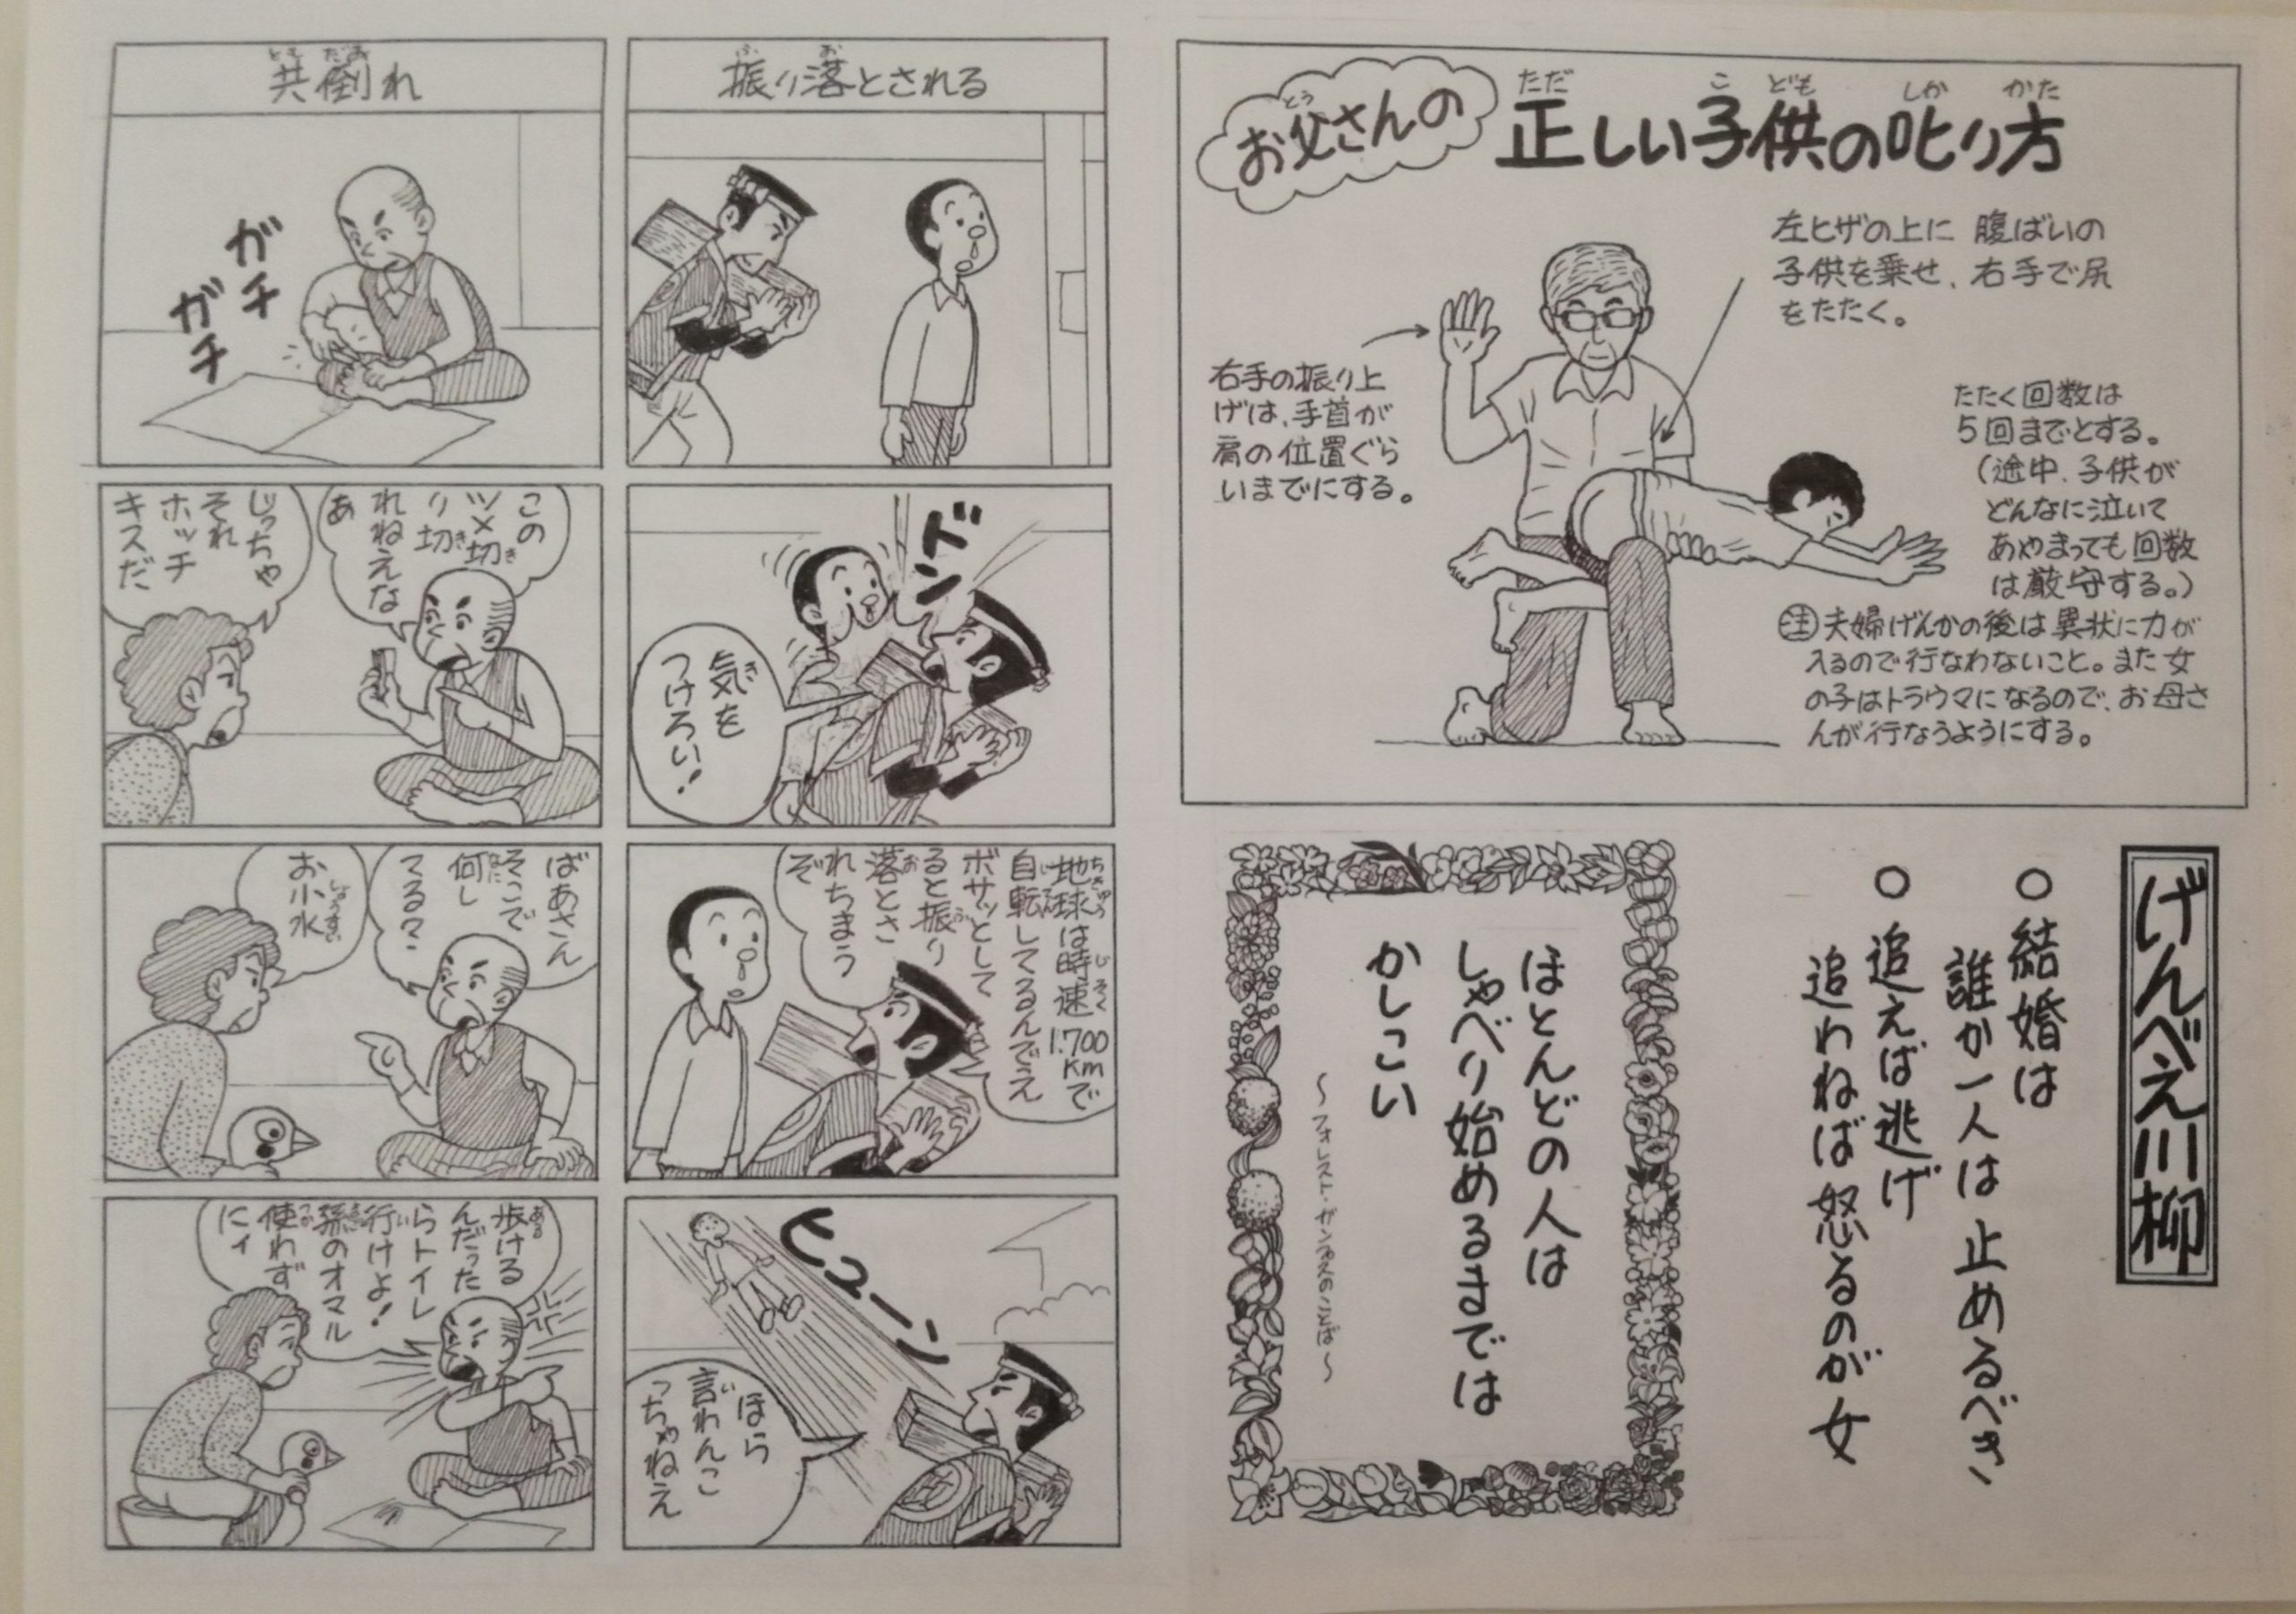 お父さんの
とう
正しい子供の叱り方
ただ こ ども しか かた
左ヒザの上に 腹ばいの
子供を乗せ、右手で尻
をたたく。
右手の振り上
げは、手首が
肩の位置ぐら
いまでにする。
たたく回数は
5回までとする。
(途中、子供が
どんなに泣いて
あやまっても回数
は厳守する。)
注夫婦げんかの後は異状に力が
入るので行なわないこと。また女
の子はトラウマになるので、お母さ
んが行なうようにする。
げんべえ川柳
○結婚は
誰か一人は止めるべき
○追えば逃げ
追わねば怒るのが女
ほとんどの人は
しゃべり始めるまでは
かしこい
〜フォレスト・ガンプ父のことば〜
振り落とされる
ふ お
ドン
気を
き
つけろい!
地球は時速
ちきゅう じそく
1.700
Kmで
自転してるんでえ
じてん
ボサッとして
ると振り
ふ
落とさ
お
れちまう
ぞ
ヒューン
ほら
言わんこ
い
っちゃねえ
共倒れ
とも だお
ガチ
ガチ
この
ツメ切
き
り切
き
れねえな
あ
じっちゃ
それ
ホッチ
キスだ
ばあさん
そこで
何し
なに
てる?
お小水
しょうすい
歩ける
ある
んだった
らトイレ
行けよ!
い
孫のオマル
まご
使わず
つか
にィ